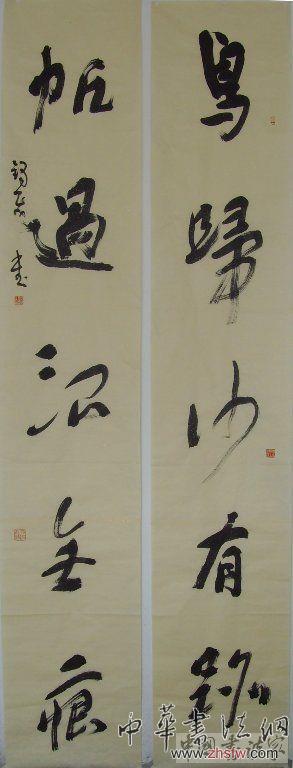 鳥歸沙有跡
帆過浪無痕
中華書法網
www.zhsfw.com